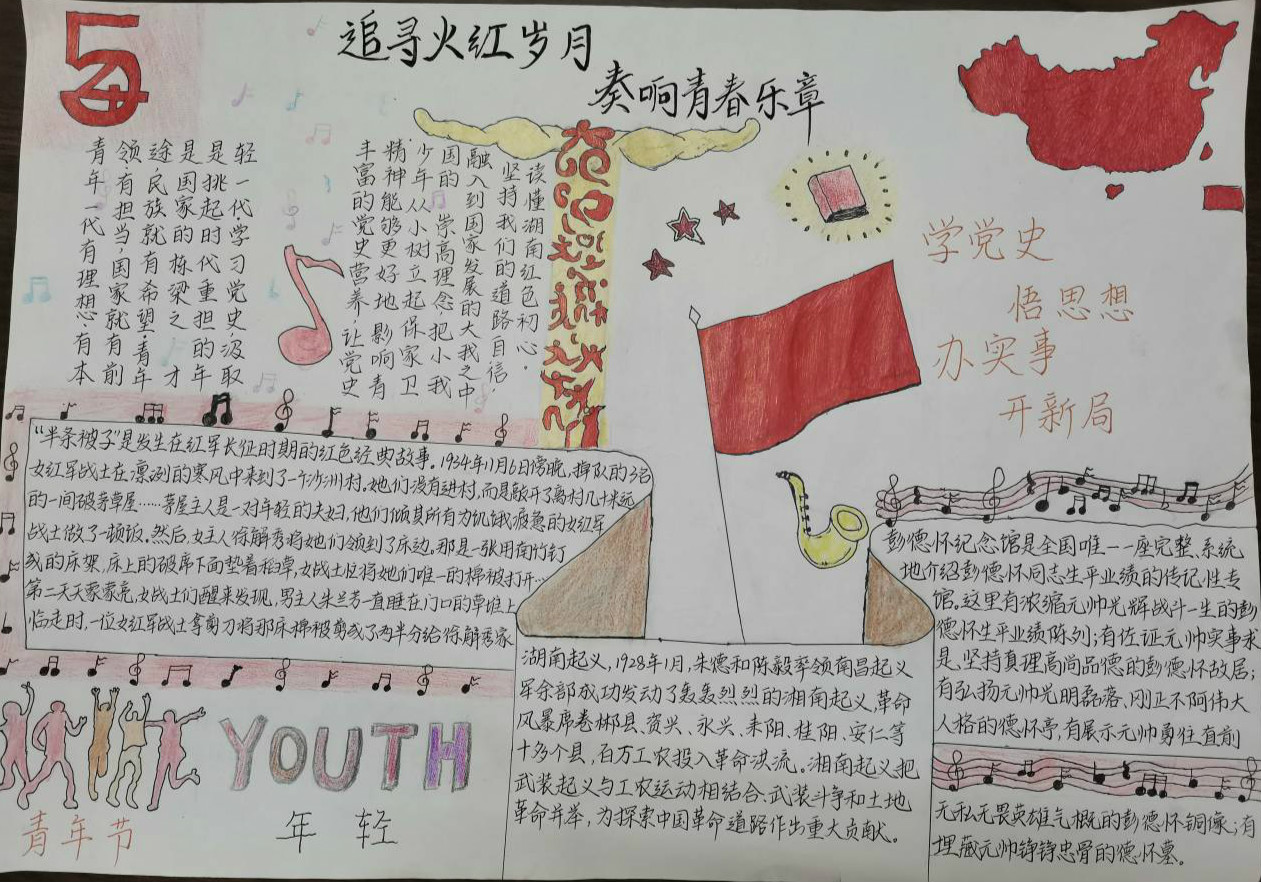 54
追寻火红岁月
奏响青春乐章
青年一代有理想、有本
领、有担当,国家就有前
途,民族就有希望。青年
是国家的栋梁之才
是挑起时代重担的年
轻一代学习党史、汲取
丰富的党史营养,让党史
精神能够更好地影响青
少年从小树立起保家卫
国的崇高理念,把小我
融入到国家发展的大我之中
坚持我们的道路自信,
读懂湖南红色初心。
学党史
悟思想
办实事
开新局
“半条被子”是发生在红军长征时期的红色经典故事。1934年11月6日傍晚,掉队的3名
女红军战士在凛冽的寒风中来到了一个沙洲村,她们没有进村,而是敲开了离村几十米远
的一间破茅草屋……茅屋主人是一对年轻的夫妇,他们倾其所有为饥饿疲惫的女红军
战士做了一顿饭。然后,女主人徐解秀将她们领到了床边。那是一张用南竹钉
成的床架,床上的破席下面垫着稻草,女战士们将她们唯一的棉被打开…
第二天天蒙蒙亮,女战士们醒来发现,男主人朱兰芳一直睡在门口的草堆上
临走时,一位女红军战士拿剪刀将那床棉被剪成了两半分给徐解秀家
青年节
YOUTH
年轻
湖南起义,1928年1月,朱德和陈毅率领南昌起义
军余部成功发动了轰轰烈烈的湘南起义,革命
风暴席卷郴县、资兴、永兴、耒阳、桂阳、安仁等
十多个县,百万工农投入革命洪流。湘南起义把
武装起义与工农运动相结合、武装斗争和土地
革命并举,为探索中国革命道路作出重大贡献。
彭德怀纪念馆是全国唯一一座完整、系统
地介绍彭德怀同志生平业绩的传记性专
馆。这里有浓缩元帅光辉战斗一生的彭
德怀生平业绩陈列;有佐证元帅实事求
是、坚持真理高尚品德的彭德怀故居;
有弘扬元帅光明磊落、刚正不阿伟大
人格的德怀亭,有展示元帅勇往直前
无私无畏英雄气概的彭德怀铜像;有
埋藏元帅铮铮忠骨的德怀墓。